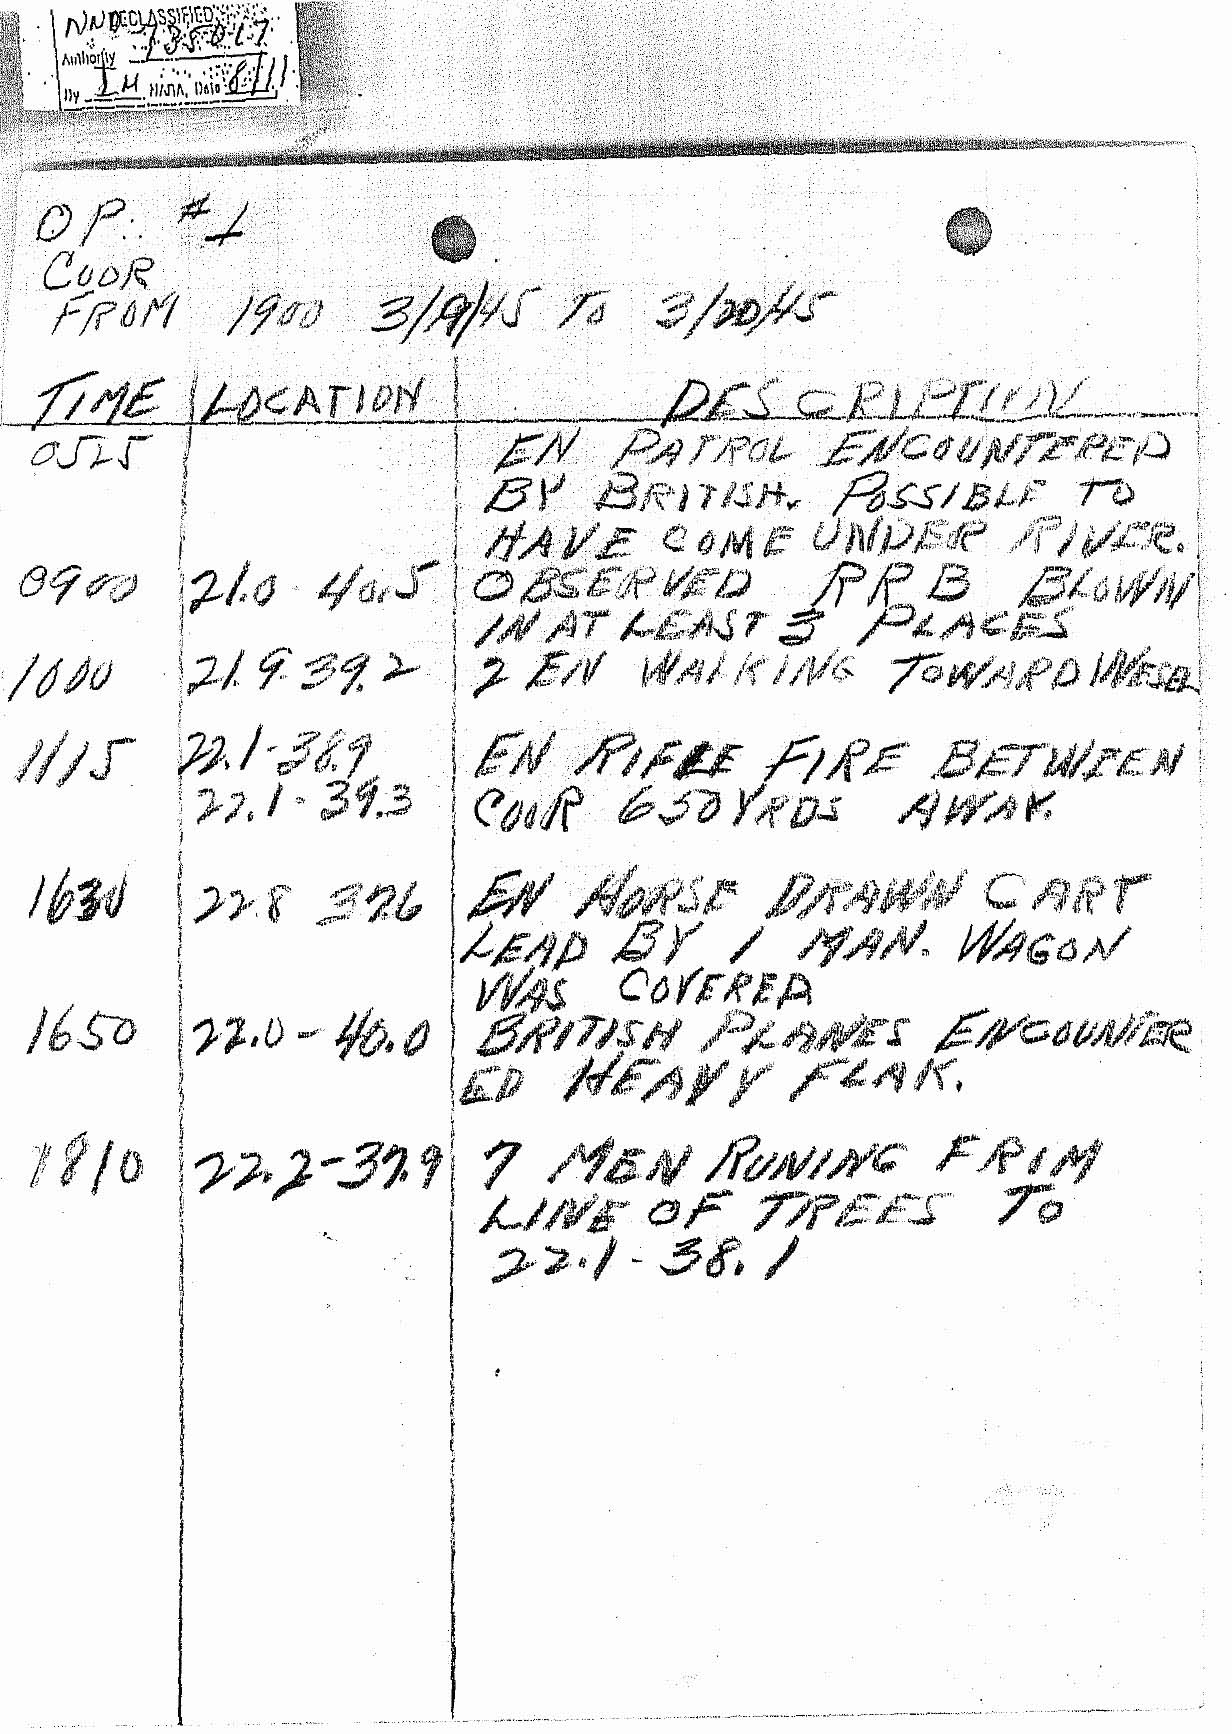 NND DECLASSIFIED
Authority 735017
By IM NARA, Date 8/11
OP: #1
COOR
FROM 1900 3/19/45 TO 3/20/45
TIME LOCATION DESCRIPTION
0525 EN PATROL ENCOUNTERED
BY BRITISH. POSSIBLE TO
HAVE COME UNDER RIVER.
0900 21.0 - 40.5 OBSERVED RRB BLOWN
IN AT LEAST 3 PLACES
1000 21.9 - 39.2 2 EN WALKING TOWARD WESEL
1115 22.1 - 38.9 EN RIFLE FIRE BETWEEN
22.1 - 39.3 COOR 650 YRDS AWAY.
1630 22.8 37.6 EN HORSE DRAWN CART
LEAD BY 1 MAN. WAGON
WAS COVERED
1650 22.0 - 40.0 BRITISH PLANES ENCOUNTER
ED HEAVY FLAK.
1810 22.2 - 37.9 7 MEN RUNING FRIM
LINE OF TREES TO
22.1 - 38.1